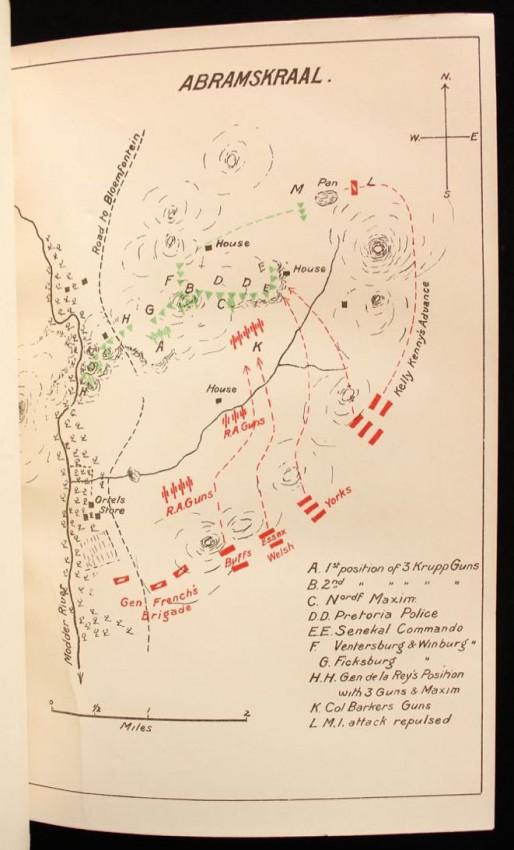 ABRAMSKRAAL.
N.
W. E
S
Road to Bloemfontein
M Pan L
House
E House
F D. D E
B C
G
H
A
K
Kelly Kenny's Advance
House
R.A Guns
R.A Guns
Ortels
Store
Yorks
Buffs Essex
Welsh
Gen French's
Brigade
Modder River
A. 1st position of 3 Krupp Guns
B. 2nd " " " " "
C. Nordf Maxim
D.D. Pretoria Police
E.E. Senekal Commando
F Ventersburg & Winburg "
G. Ficksburg "
H.H. Gen de la Rey's Position
with 3 Guns & Maxim
K. Col Barkers Guns
L M.I. attack repulsed
0 1/2 1 2
Miles